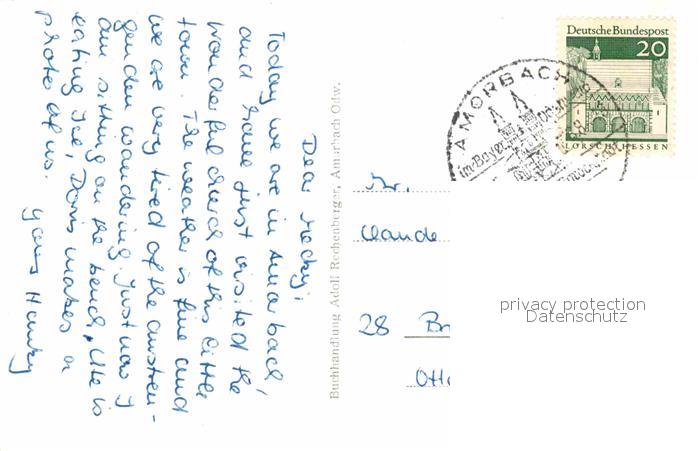 Dear Mecky,
Today we are in Amorbach,
and have just visited the
wonderful church of this little
town. The weather is fine and
we are very tired of the anstren-
genden wandering. Just now I
am sitting on the bench, Ute is
eating Ice, Doris makes a
photo of us.
yours Hanky
Buchhandlung Adolf Rechenberger, Amorbach Odw.
Deutsche Bundespost
20
LORSCH/HESSEN
AMORBACH
im Bayer.
Mr.
Claude
28 Br
Otto
privacy protection
Datenschutz